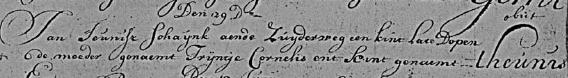 Den 29 D°
obiit
Jan Teunisz Schaijnk aende Zuyderweg een kint late Dopen
de moeder genaemt Trijntje Cornelis ent kint genaemt Theunis